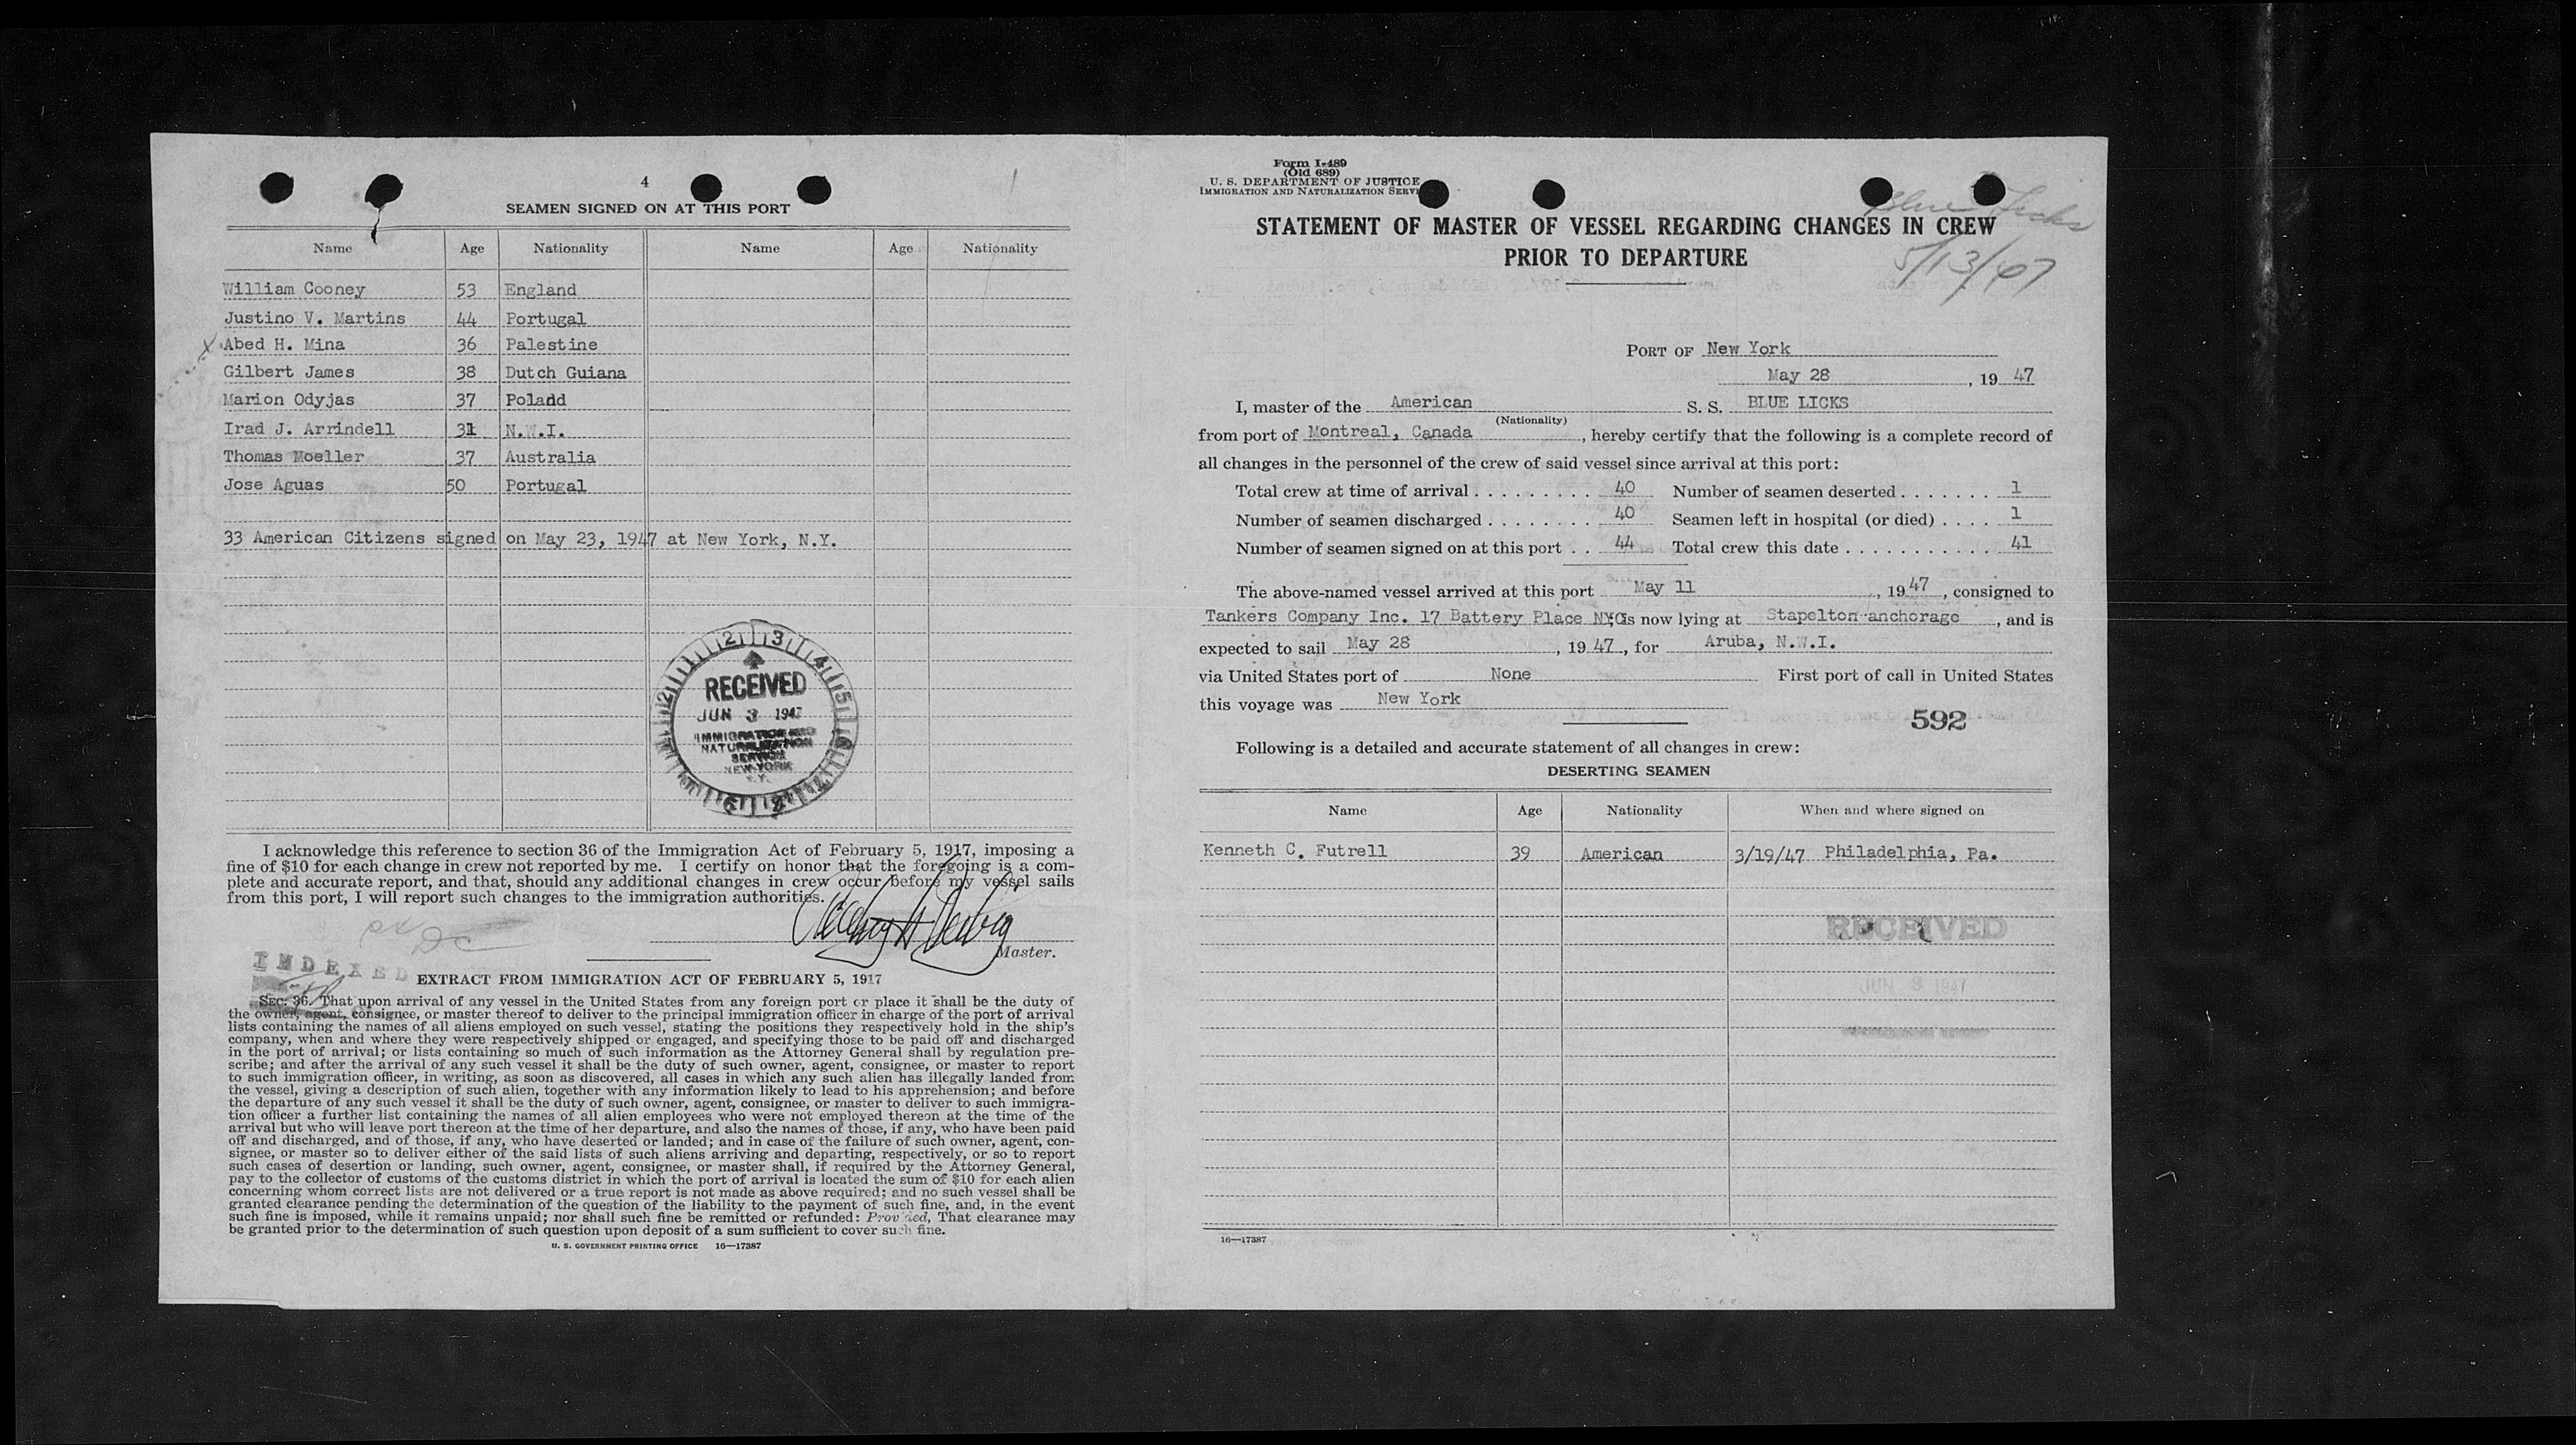 4
SEAMEN SIGNED ON AT THIS PORT
Name Age Nationality Name Age Nationality
William Cooney 53 England
Justino V. Martins 44 Portugal
X Abed H. Mina 36 Palestine
Gilbert James 38 Dutch Guiana
Marion Odyjas 37 Poland
Irad J. Arrindell 31 N.W.I.
Thomas Moeller 37 Australia
Jose Aguas 50 Portugal
33 American Citizens signed on May 23, 1947 at New York, N.Y.
RECEIVED
JUN 3 1947
IMMIGRATION AND
NATURALIZATION
SERVICE
NEW YORK
N.Y.
I acknowledge this reference to section 36 of the Immigration Act of February 5, 1917, imposing a
fine of $10 for each change in crew not reported by me. I certify on honor that the foregoing is a com-
plete and accurate report, and that, should any additional changes in crew occur before my vessel sails
from this port, I will report such changes to the immigration authorities.
Master.
INDEXED
EXTRACT FROM IMMIGRATION ACT OF FEBRUARY 5, 1917
SEC. 36. That upon arrival of any vessel in the United States from any foreign port or place it shall be the duty of
the owner, agent, consignee, or master thereof to deliver to the principal immigration officer in charge of the port of arrival
lists containing the names of all aliens employed on such vessel, stating the positions they respectively hold in the ship's
company, when and where they were respectively shipped or engaged, and specifying those to be paid off and discharged
in the port of arrival; or lists containing so much of such information as the Attorney General shall by regulation pre-
scribe; and after the arrival of any such vessel it shall be the duty of such owner, agent, consignee, or master to report
to such immigration officer, in writing, as soon as discovered, all cases in which any such alien has illegally landed from
the vessel, giving a description of such alien, together with any information likely to lead to his apprehension; and before
the departure of any such vessel it shall be the duty of such owner, agent, consignee, or master to deliver to such immigra-
tion officer a further list containing the names of all alien employees who were not employed thereon at the time of the
arrival but who will leave port thereon at the time of her departure, and also the names of those, if any, who have been paid
off and discharged, and of those, if any, who have deserted or landed; and in case of the failure of such owner, agent, con-
signee, or master so to deliver either of the said lists of such aliens arriving and departing, respectively, or so to report
such cases of desertion or landing, such owner, agent, consignee, or master shall, if required by the Attorney General,
pay to the collector of customs of the customs district in which the port of arrival is located the sum of $10 for each alien
concerning whom correct lists are not delivered or a true report is not made as above required; and no such vessel shall be
granted clearance pending the determination of the question of the liability to the payment of such fine, and, in the event
such fine is imposed, while it remains unpaid; nor shall such fine be remitted or refunded: Provided, That clearance may
be granted prior to the determination of such question upon deposit of a sum sufficient to cover such fine.
U. S. GOVERNMENT PRINTING OFFICE 16—17387
Form I-489
(Old 689)
U. S. DEPARTMENT OF JUSTICE
IMMIGRATION AND NATURALIZATION SERVI
Blue Licks
5/13/47
STATEMENT OF MASTER OF VESSEL REGARDING CHANGES IN CREW
PRIOR TO DEPARTURE
PORT OF New York
May 28, 19 47
I, master of the American S. S. BLUE LICKS
(Nationality)
from port of Montreal, Canada, hereby certify that the following is a complete record of
all changes in the personnel of the crew of said vessel since arrival at this port:
Total crew at time of arrival . . . . . . . . . 40 Number of seamen deserted . . . . . . . 1
Number of seamen discharged . . . . . . . . 40 Seamen left in hospital (or died) . . . . 1
Number of seamen signed on at this port . . 44 Total crew this date . . . . . . . . . . . 41
The above-named vessel arrived at this port May 11, 19 47, consigned to
Tankers Company Inc. 17 Battery Place NYC; is now lying at Stapelton anchorage, and is
expected to sail May 28, 19 47, for Aruba, N.W.I.
via United States port of None First port of call in United States
this voyage was New York
592
Following is a detailed and accurate statement of all changes in crew:
DESERTING SEAMEN
Name Age Nationality When and where signed on
Kenneth C. Futrell 39 American 3/19/47 Philadelphia, Pa.
RECEIVED
JUN 3 1947
16—17387